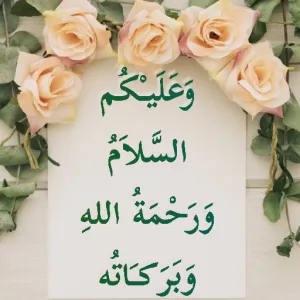 وَعَلَيْكُم
السَّلاَمُ
وَرَحْمَةُ اللهِ
وَبَرَكَاتُه